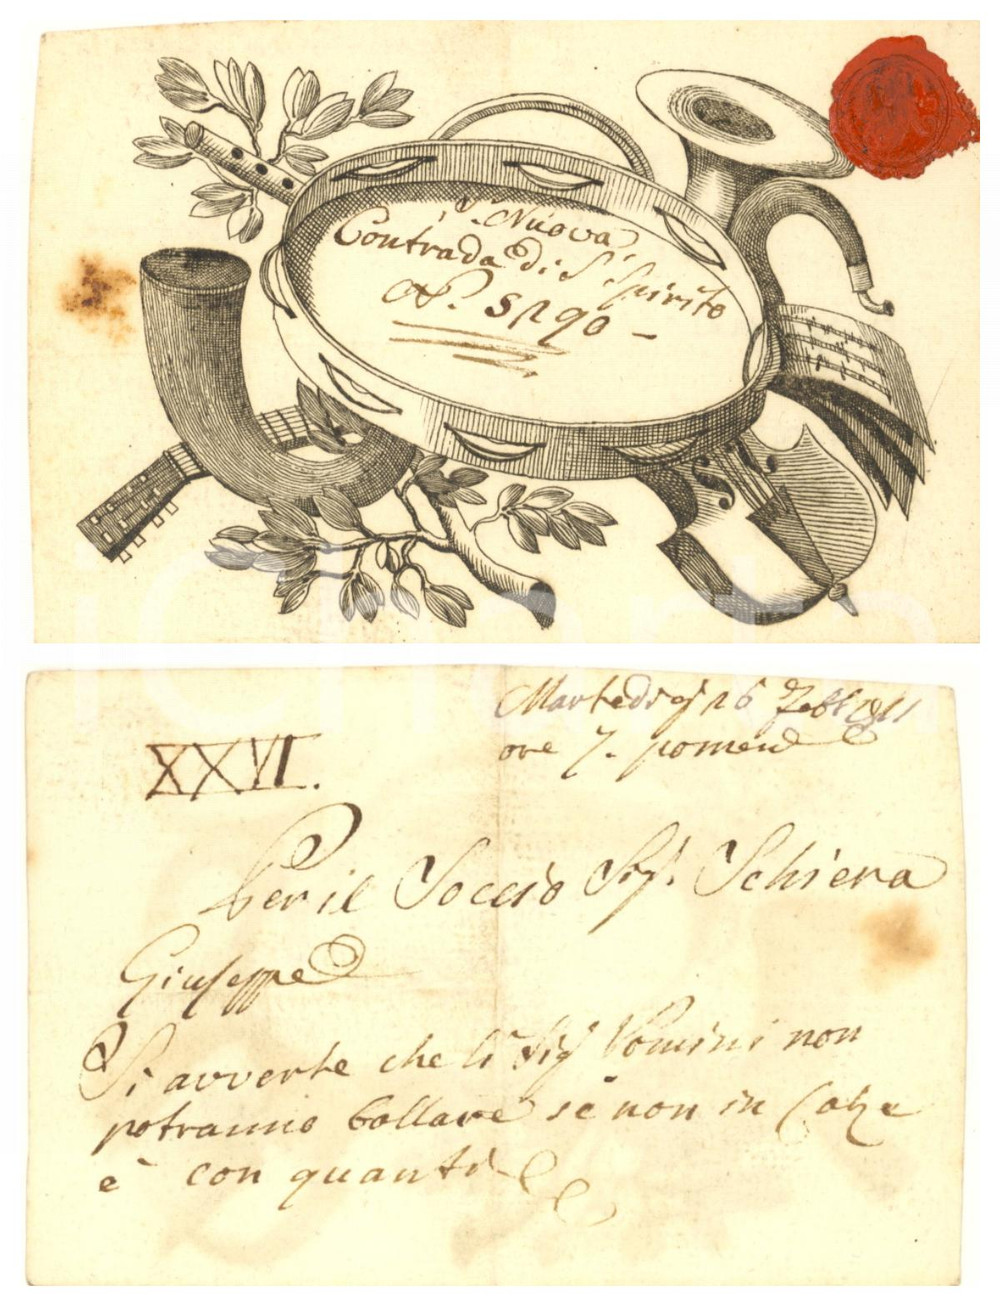 Nuova
Contrada di S. Spirito
N. 5190
Martedì 26 Febb 1811
ore 7. pomerid
XXVI.
Per il Soccio Sig. Schiera
Giuseppe
Si avverte che li Sig Uomini non
potranno ballare se non in Calze
è con quanti